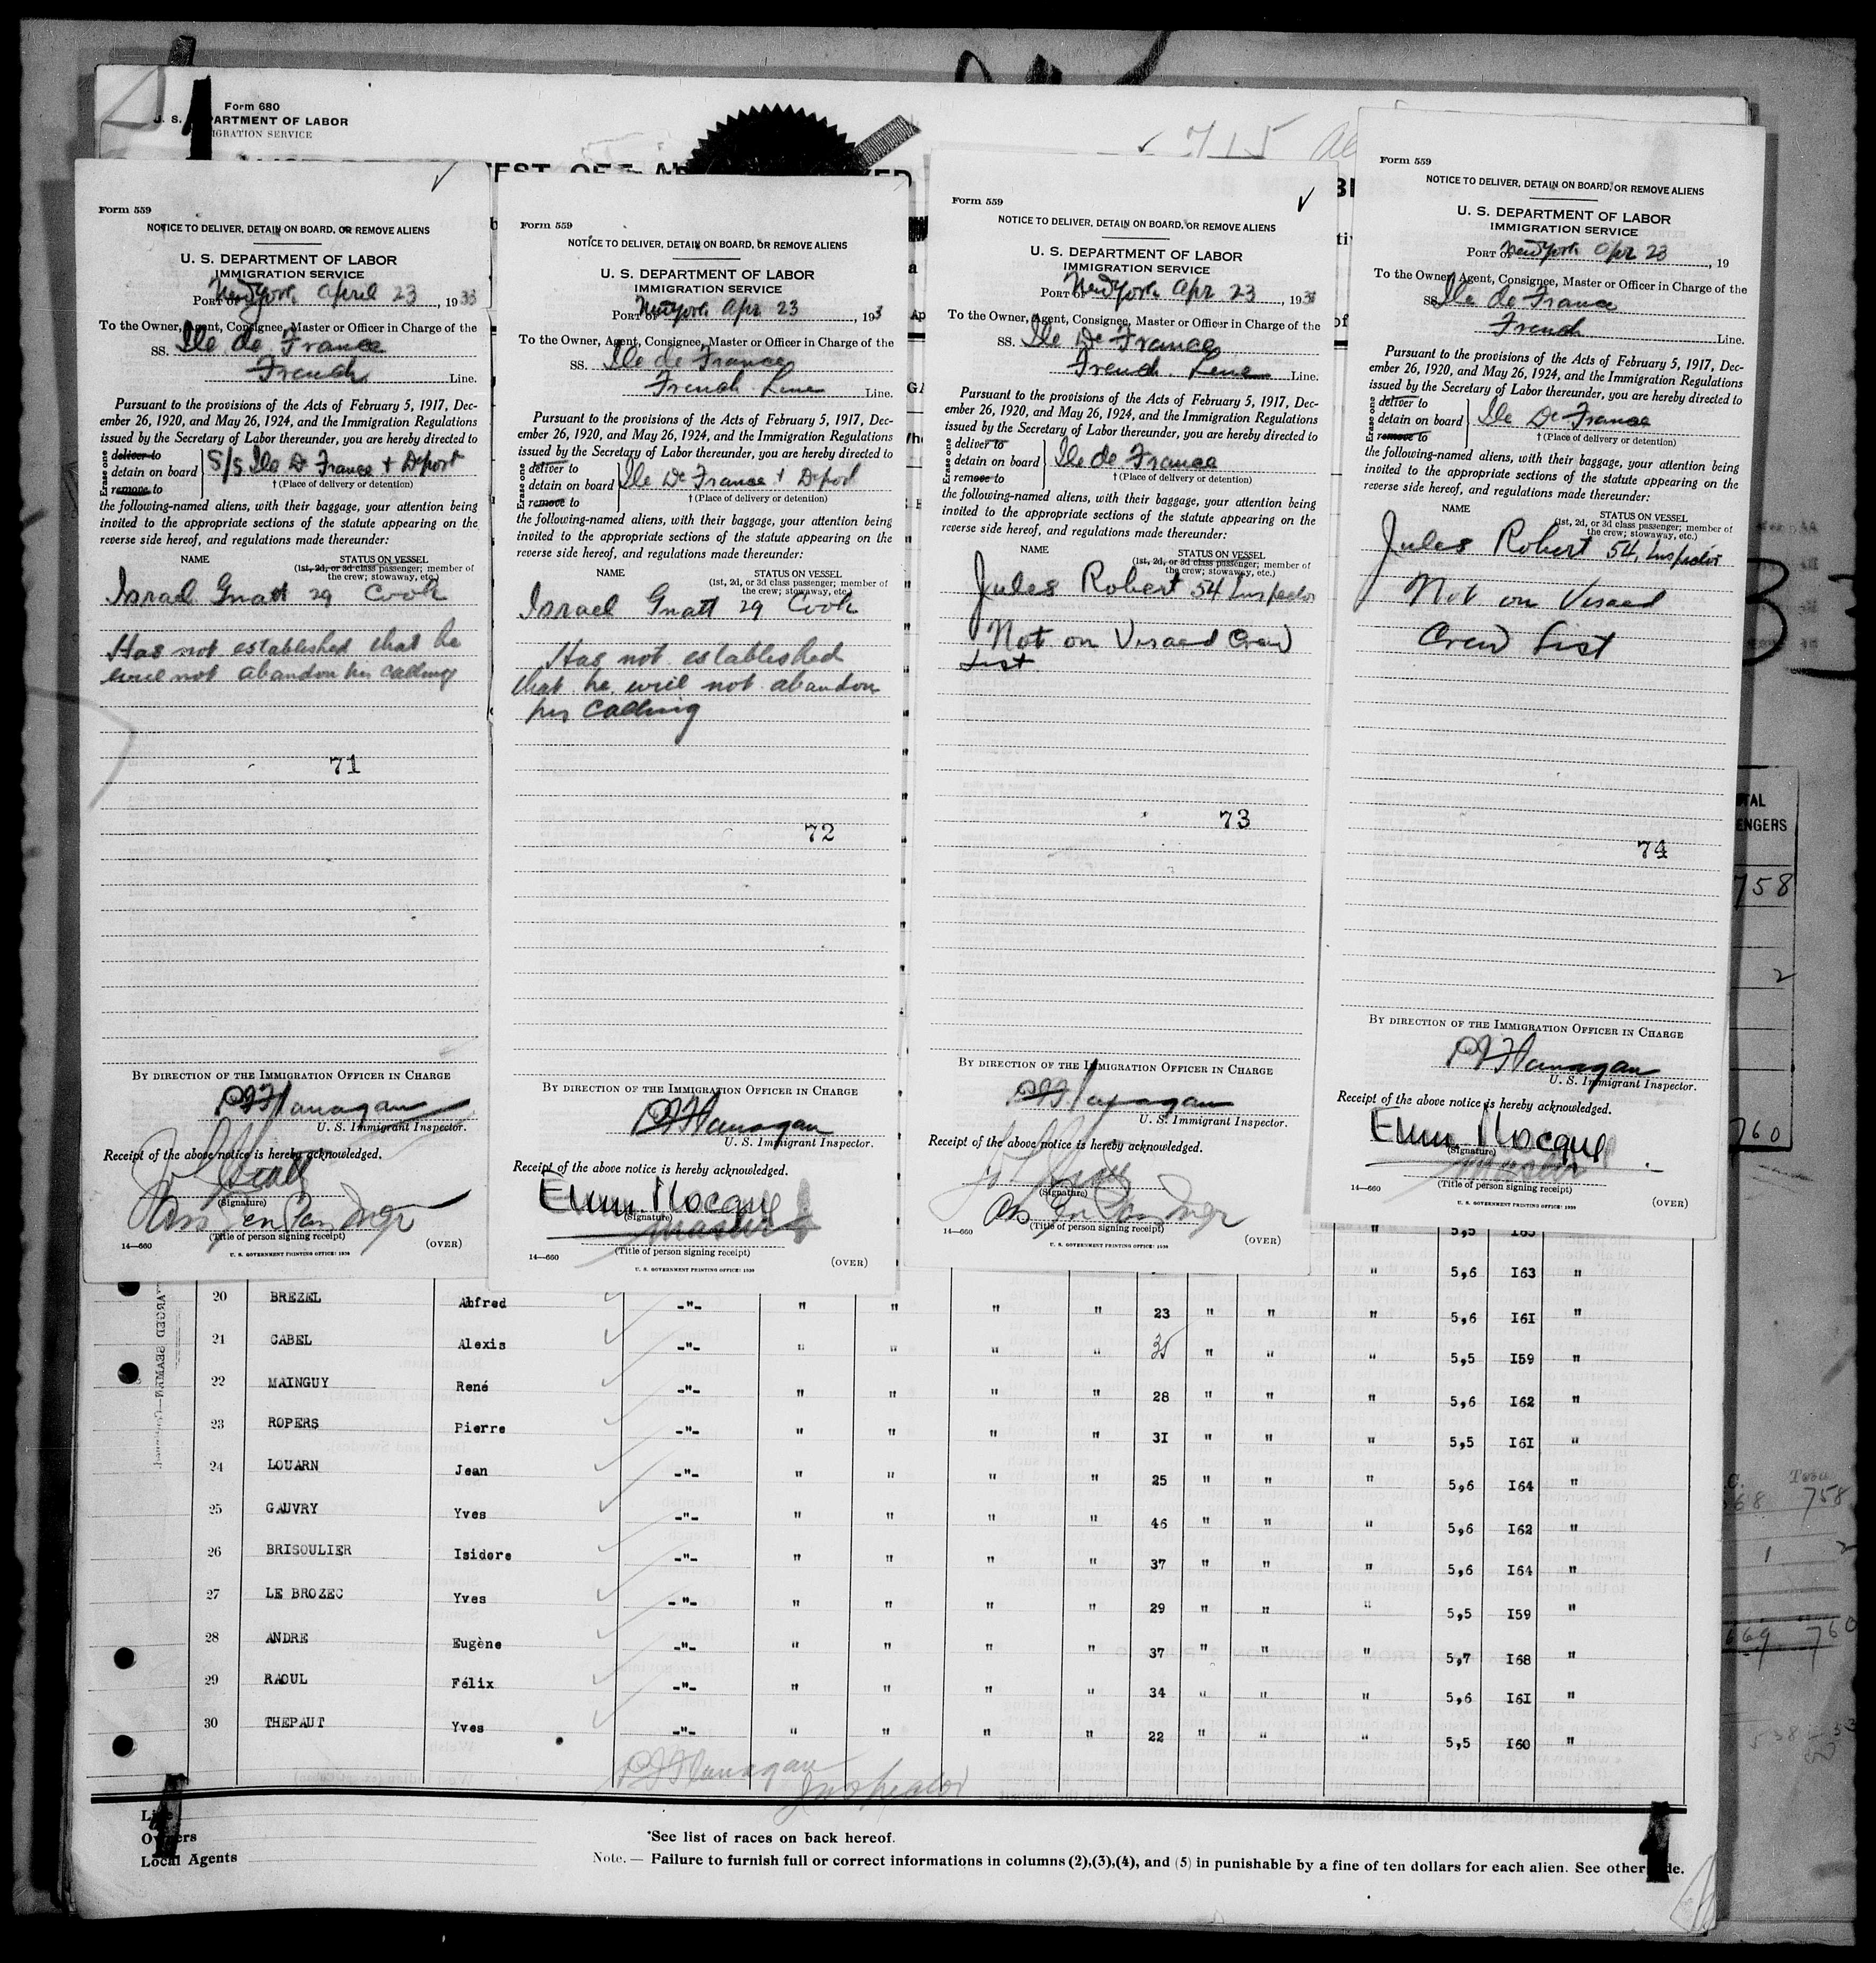 Form 680
U. S. DEPARTMENT OF LABOR
IMMIGRATION SERVICE
715
Form 559
NOTICE TO DELIVER, DETAIN ON BOARD, OR REMOVE ALIENS
U. S. DEPARTMENT OF LABOR
IMMIGRATION SERVICE
PORT OF New York April 23, 1933
To the Owner, Agent, Consignee, Master or Officer in Charge of the
SS. Ile de France
French Line.
Pursuant to the provisions of the Acts of February 5, 1917, Dec-
ember 26, 1920, and May 26, 1924, and the Immigration Regulations
issued by the Secretary of Labor thereunder, you are hereby directed to
Erase one
deliver to
detain on board S/S Ile De France + Deport
remove to
† (Place of delivery or detention)
the following-named aliens, with their baggage, your attention being
invited to the appropriate sections of the statute appearing on the
reverse side hereof, and regulations made thereunder:
NAME STATUS ON VESSEL
(1st, 2d, or 3d class passenger; member of
the crew; stowaway, etc.)
Israel Gnatt 29 Cook
Has not established that he
will not abandon his calling
71
BY DIRECTION OF THE IMMIGRATION OFFICER IN CHARGE
Flanagan
U. S. Immigrant Inspector.
Receipt of the above notice is hereby acknowledged.
(Signature)
(Title of person signing receipt)
14—660 (OVER)
U. S. GOVERNMENT PRINTING OFFICE: 1930
Form 559
NOTICE TO DELIVER, DETAIN ON BOARD, OR REMOVE ALIENS
U. S. DEPARTMENT OF LABOR
IMMIGRATION SERVICE
PORT OF New York Apr 23, 193
To the Owner, Agent, Consignee, Master or Officer in Charge of the
SS. Ile de France
French Line Line.
Pursuant to the provisions of the Acts of February 5, 1917, Dec-
ember 26, 1920, and May 26, 1924, and the Immigration Regulations
issued by the Secretary of Labor thereunder, you are hereby directed to
Erase one
deliver to
detain on board Ile De France + Deport
remove to
† (Place of delivery or detention)
the following-named aliens, with their baggage, your attention being
invited to the appropriate sections of the statute appearing on the
reverse side hereof, and regulations made thereunder:
NAME STATUS ON VESSEL
(1st, 2d, or 3d class passenger; member of
the crew; stowaway, etc.)
Israel Gnatt 29 Cook
Has not established
that he will not abandon
his calling
72
BY DIRECTION OF THE IMMIGRATION OFFICER IN CHARGE
Flanagan
U. S. Immigrant Inspector.
Receipt of the above notice is hereby acknowledged.
(Signature)
Master
(Title of person signing receipt)
14—660 (OVER)
U. S. GOVERNMENT PRINTING OFFICE: 1930
Form 559
NOTICE TO DELIVER, DETAIN ON BOARD, OR REMOVE ALIENS
U. S. DEPARTMENT OF LABOR
IMMIGRATION SERVICE
PORT OF New York Apr 23, 193
To the Owner, Agent, Consignee, Master or Officer in Charge of the
SS. Ile De France
French Line Line.
Pursuant to the provisions of the Acts of February 5, 1917, Dec-
ember 26, 1920, and May 26, 1924, and the Immigration Regulations
issued by the Secretary of Labor thereunder, you are hereby directed to
Erase one
deliver to
detain on board Ile de France
remove to
† (Place of delivery or detention)
the following-named aliens, with their baggage, your attention being
invited to the appropriate sections of the statute appearing on the
reverse side hereof, and regulations made thereunder:
NAME STATUS ON VESSEL
(1st, 2d, or 3d class passenger; member of
the crew; stowaway, etc.)
Jules Robert 54 Inspector
Not on Visaed Crew
List
73
BY DIRECTION OF THE IMMIGRATION OFFICER IN CHARGE
Flanagan
U. S. Immigrant Inspector.
Receipt of the above notice is hereby acknowledged.
(Signature)
(Title of person signing receipt)
14—660 (OVER)
U. S. GOVERNMENT PRINTING OFFICE: 1930
Form 559
NOTICE TO DELIVER, DETAIN ON BOARD, OR REMOVE ALIENS
U. S. DEPARTMENT OF LABOR
IMMIGRATION SERVICE
PORT OF New York Apr 23, 19
To the Owner, Agent, Consignee, Master or Officer in Charge of the
SS. Ile de France
French Line.
Pursuant to the provisions of the Acts of February 5, 1917, Dec-
ember 26, 1920, and May 26, 1924, and the Immigration Regulations
issued by the Secretary of Labor thereunder, you are hereby directed to
Erase one
deliver to
detain on board Ile De France
remove to
† (Place of delivery or detention)
the following-named aliens, with their baggage, your attention being
invited to the appropriate sections of the statute appearing on the
reverse side hereof, and regulations made thereunder:
NAME STATUS ON VESSEL
(1st, 2d, or 3d class passenger; member of
the crew; stowaway, etc.)
Jules Robert 54, Inspector
Not on Visaed
Crew List
74
BY DIRECTION OF THE IMMIGRATION OFFICER IN CHARGE
Flanagan
U. S. Immigrant Inspector.
Receipt of the above notice is hereby acknowledged.
(Signature)
Master
(Title of person signing receipt)
14—660 (OVER)
U. S. GOVERNMENT PRINTING OFFICE: 1930
758
2
760
" 5,6 I63 "
20 BREZEL Alfred -"- " " " " 23 " " " 5,6 I6I "
21 CABEL Alexis -"- " " " " 35 " " " 5,5 I59 "
22 MAINGUY René -"- " " " " 28 " " " 5,6 I62 "
23 ROPERS Pierre -"- " " " " 3I " " " 5,5 I6I "
24 LOUARN Jean -"- " " " " 25 " " " 5,6 I64 "
25 GAUVRY Yves -"- " " " " 46 " " " 5,6 I62 "
26 BRISOULIER Isidore -"- " " " " 37 " " " 5,6 I64 "
27 LE BROZEC Yves -"- " " " " 29 " " " 5,5 I59 "
28 ANDRE Eugène -"- " " " " 37 " " " 5,7 I68 "
29 RAOUL Félix -"- " " " " 34 " " " 5,6 I6I "
30 THEPAUT Yves -"- " " " " 22 " " " 5,5 I60 "
Flanagan
Inspector
Owners
Local Agents
*See list of races on back hereof.
Note. — Failure to furnish full or correct informations in columns (2),(3),(4), and (5) in punishable by a fine of ten dollars for each alien. See other side.
758
669 760